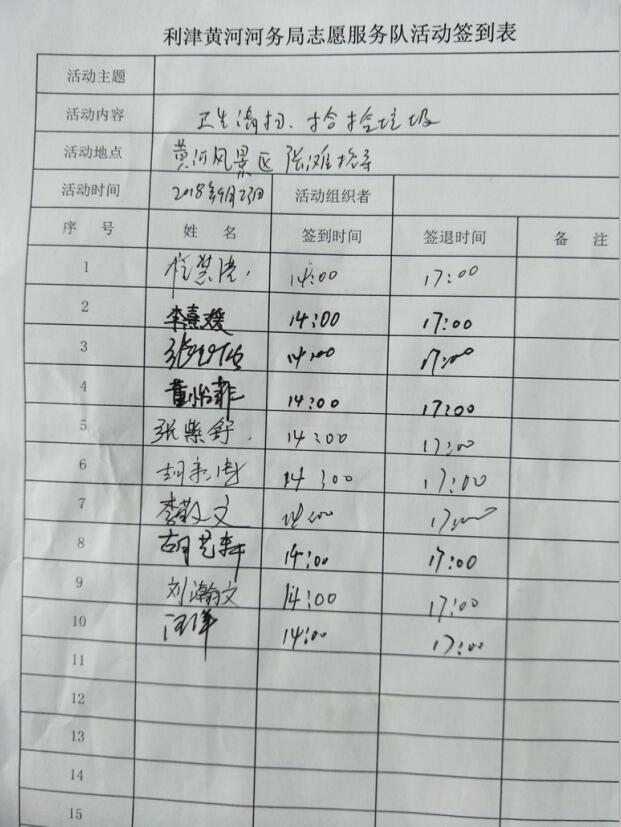 利津黄河河务局志愿服务队活动签到表
活动主题
活动内容 卫生清扫、捡拾垃圾
活动地点 黄河风景区张滩险工
活动时间 2018年9月23日 活动组织者
序 号 姓 名 签到时间 签退时间 备 注
1 14:00 17:00
2 李熹媛 14:00 17:00
3 14:00 17:00
4 董怡菲 14:00 17:00
5 张紫舒 14:00 17:00
6 14:00 17:00
7 李敬文 14:00 17:00
8 胡艺轩 14:00 17:00
9 刘瀚文 14:00 17:00
10 汪洋 14:00 17:00
11
12
13
14
15